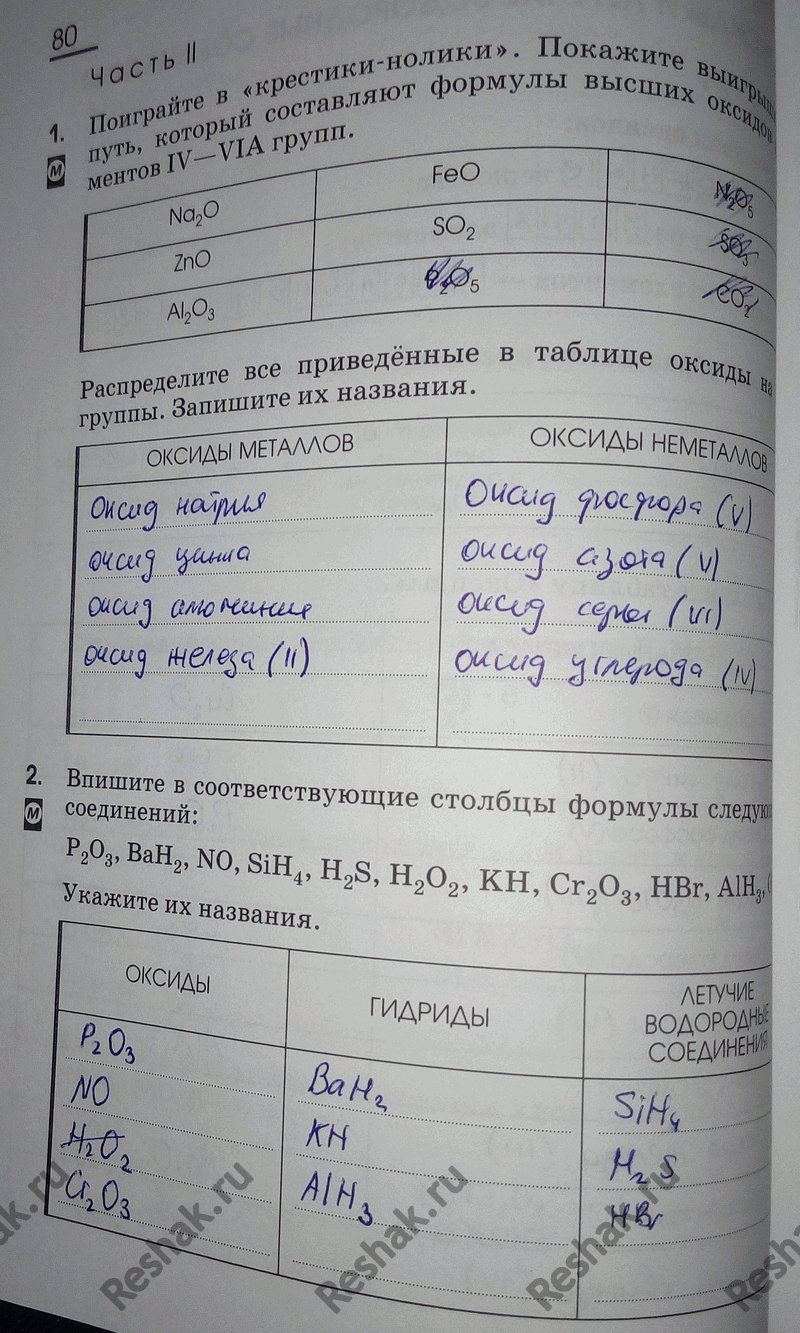 80
Часть II
1. Поиграйте в «крестики-нолики». Покажите выигрыш
путь, который составляют формулы высших оксидов
ментов IV—VIA групп.
М
Na₂O FeO N₂O₅
ZnO SO₂ SO₃
Al₂O₃ P₂O₅ CO₂
Распределите все приведённые в таблице оксиды на
группы. Запишите их названия.
ОКСИДЫ МЕТАЛЛОВ ОКСИДЫ НЕМЕТАЛЛОВ
оксид натрия Оксид фосфора (V)
оксид цинка оксид азота (V)
оксид алюминия оксид серы (VI)
оксид железа (II) оксид углерода (IV)
2. Впишите в соответствующие столбцы формулы следую
М соединений:
P₂O₃, BaH₂, NO, SiH₄, H₂S, H₂O₂, KH, Cr₂O₃, HBr, AlH₃,
Укажите их названия.
ОКСИДЫ ГИДРИДЫ ЛЕТУЧИЕ
ВОДОРОДНЫЕ
СОЕДИНЕНИЯ
P₂O₃ BaH₂ SiH₄
NO KH H₂S
H₂O₂ AlH₃ HBr
Cr₂O₃
ak.ru
Reshak.ru
Reshak.ru
Reshak.ru
Reshak